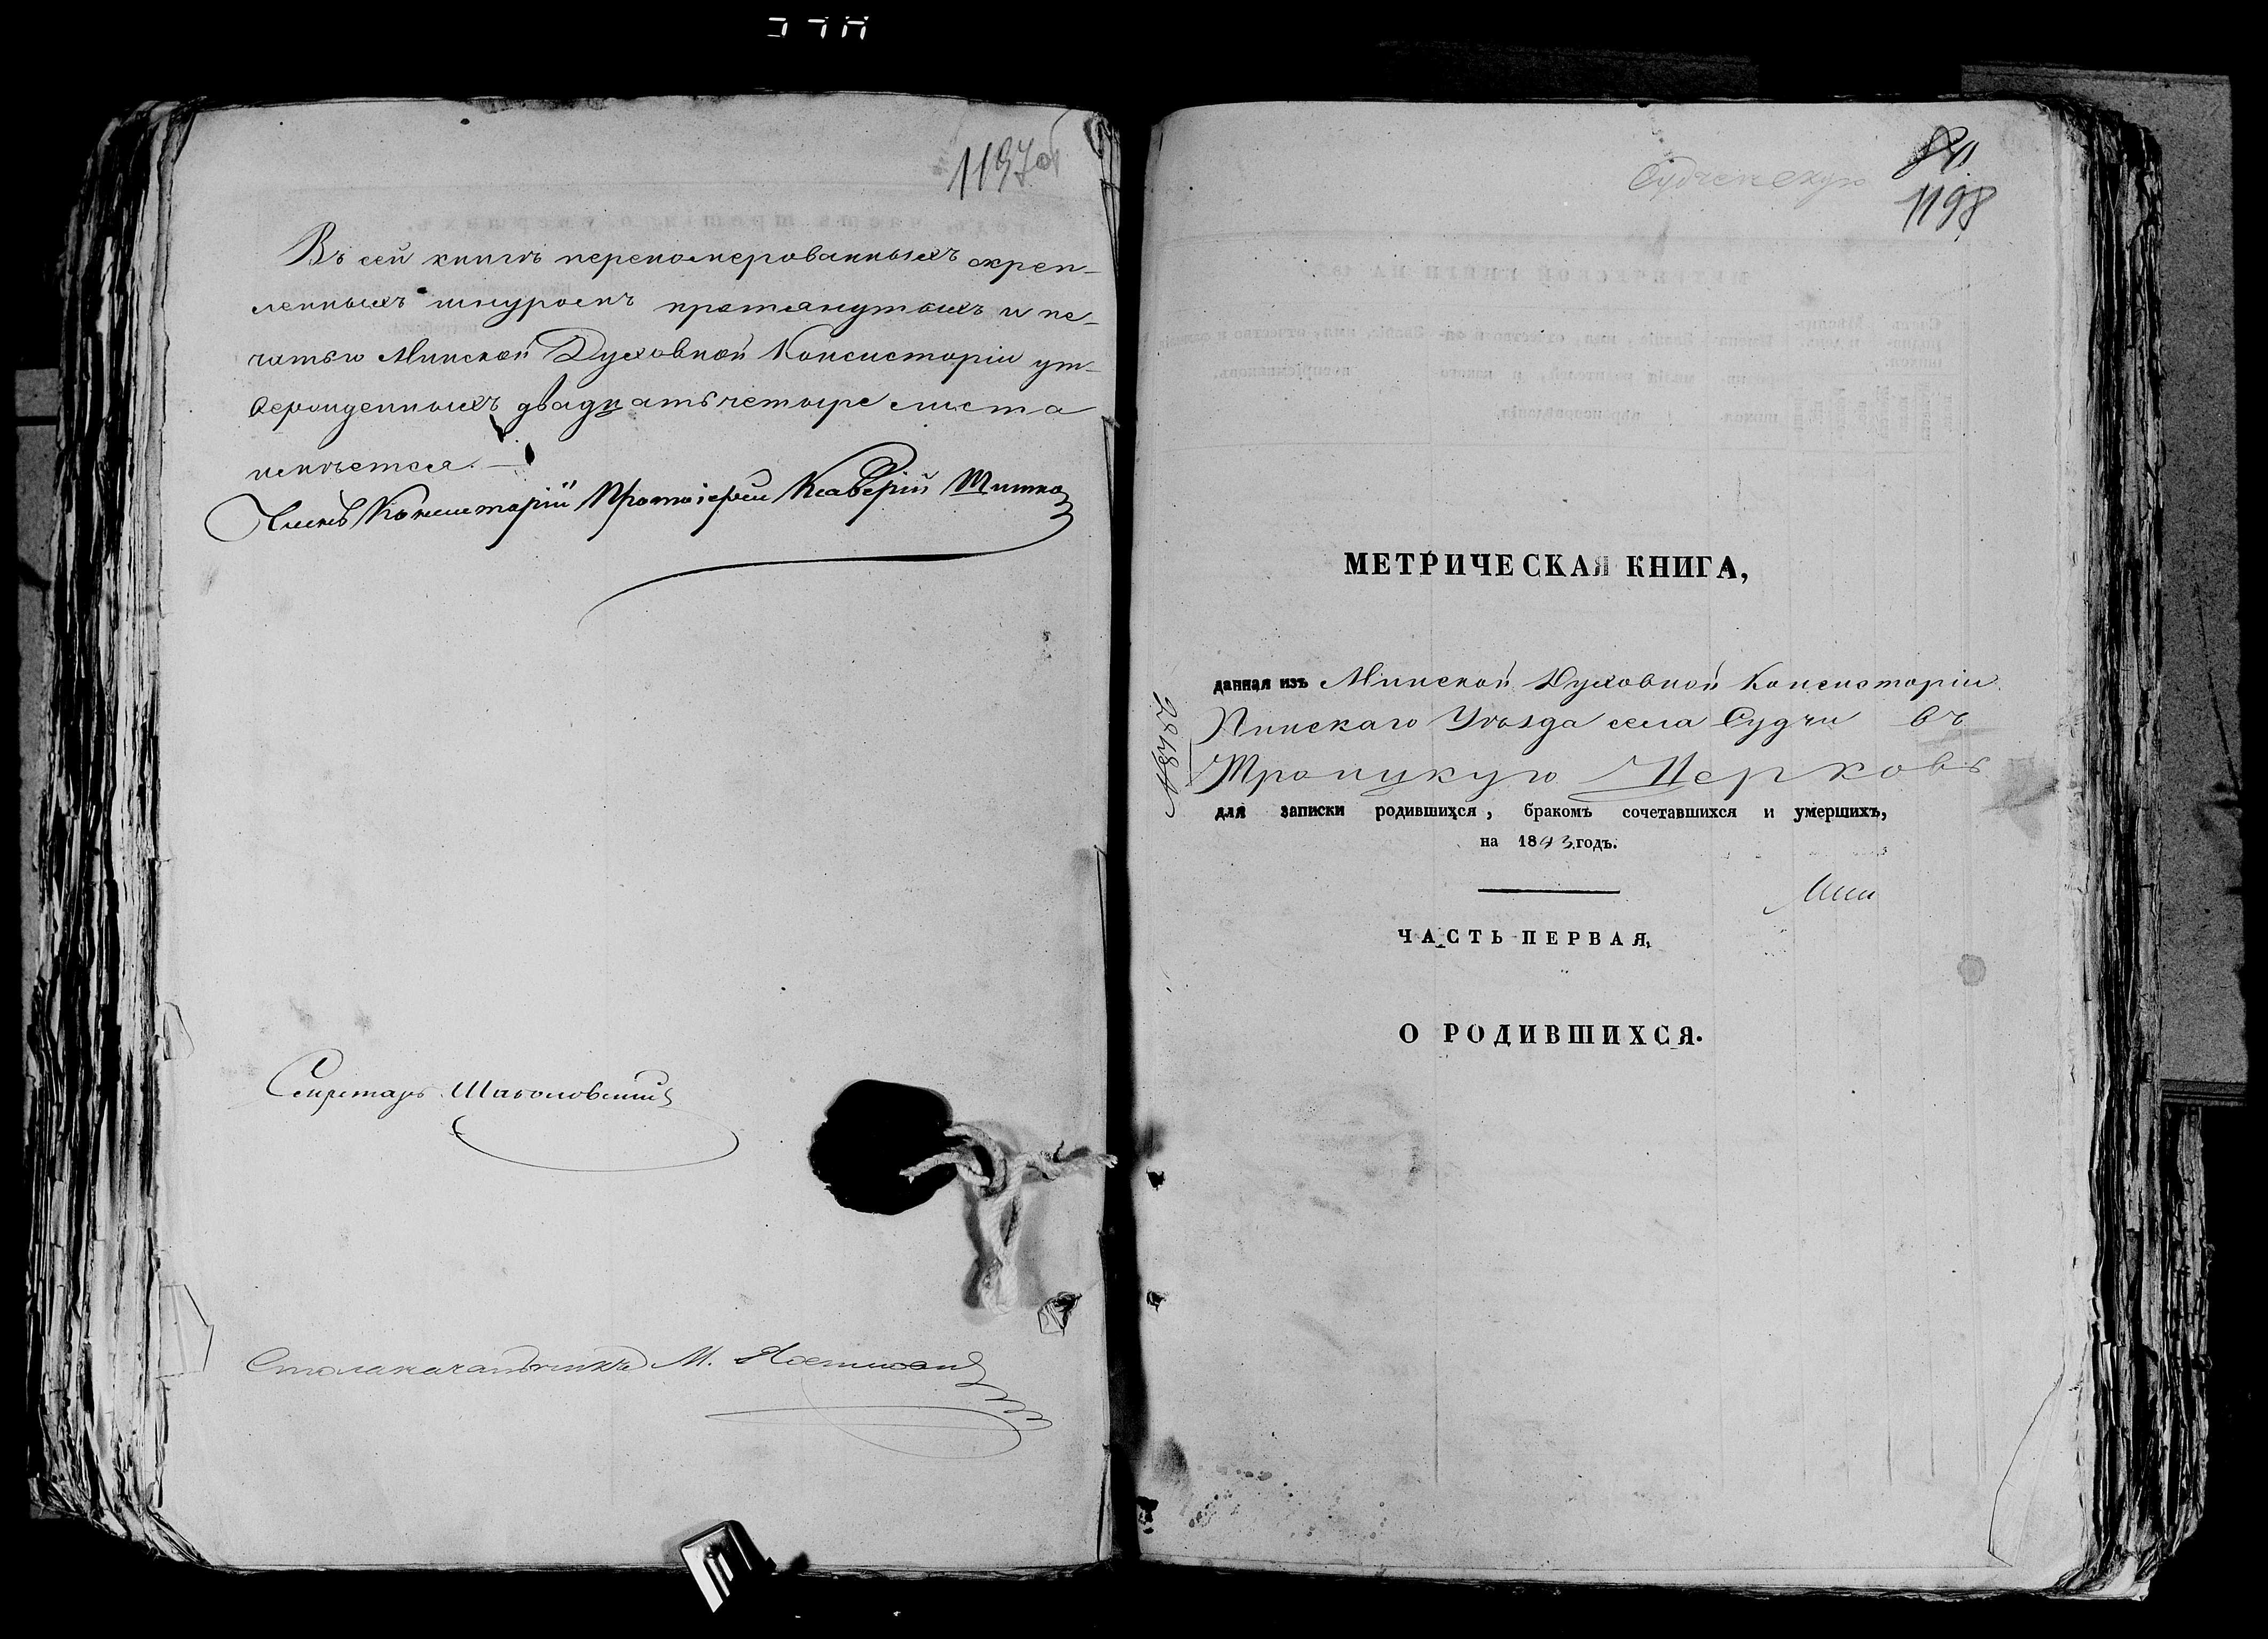 1197об
Въ сей книгѣ перенумерованныхъ скреп-
ленныхъ шнуромъ протянутыхъ и пе-
чатью Минской Духовной Консисторіи ут-
вержденныхъ двадцать четыре листа
имѣется. —
Членъ Консисторіи Протоіерей Ксаверій
Секретарь
Столоначальникъ М.
Судченскую
1198
МЕТРИЧЕСКАЯ КНИГА,
данная изъ Минской Духовной Консисторіи
Пинскаго Уѣзда села Судчи въ
Троицкую Церковь
№ 8486
для записки родившихся, бракомъ сочетавшихся и умершихъ,
на 1843 годъ.
ЧАСТЬ ПЕРВАЯ,
О РОДИВШИХСЯ.